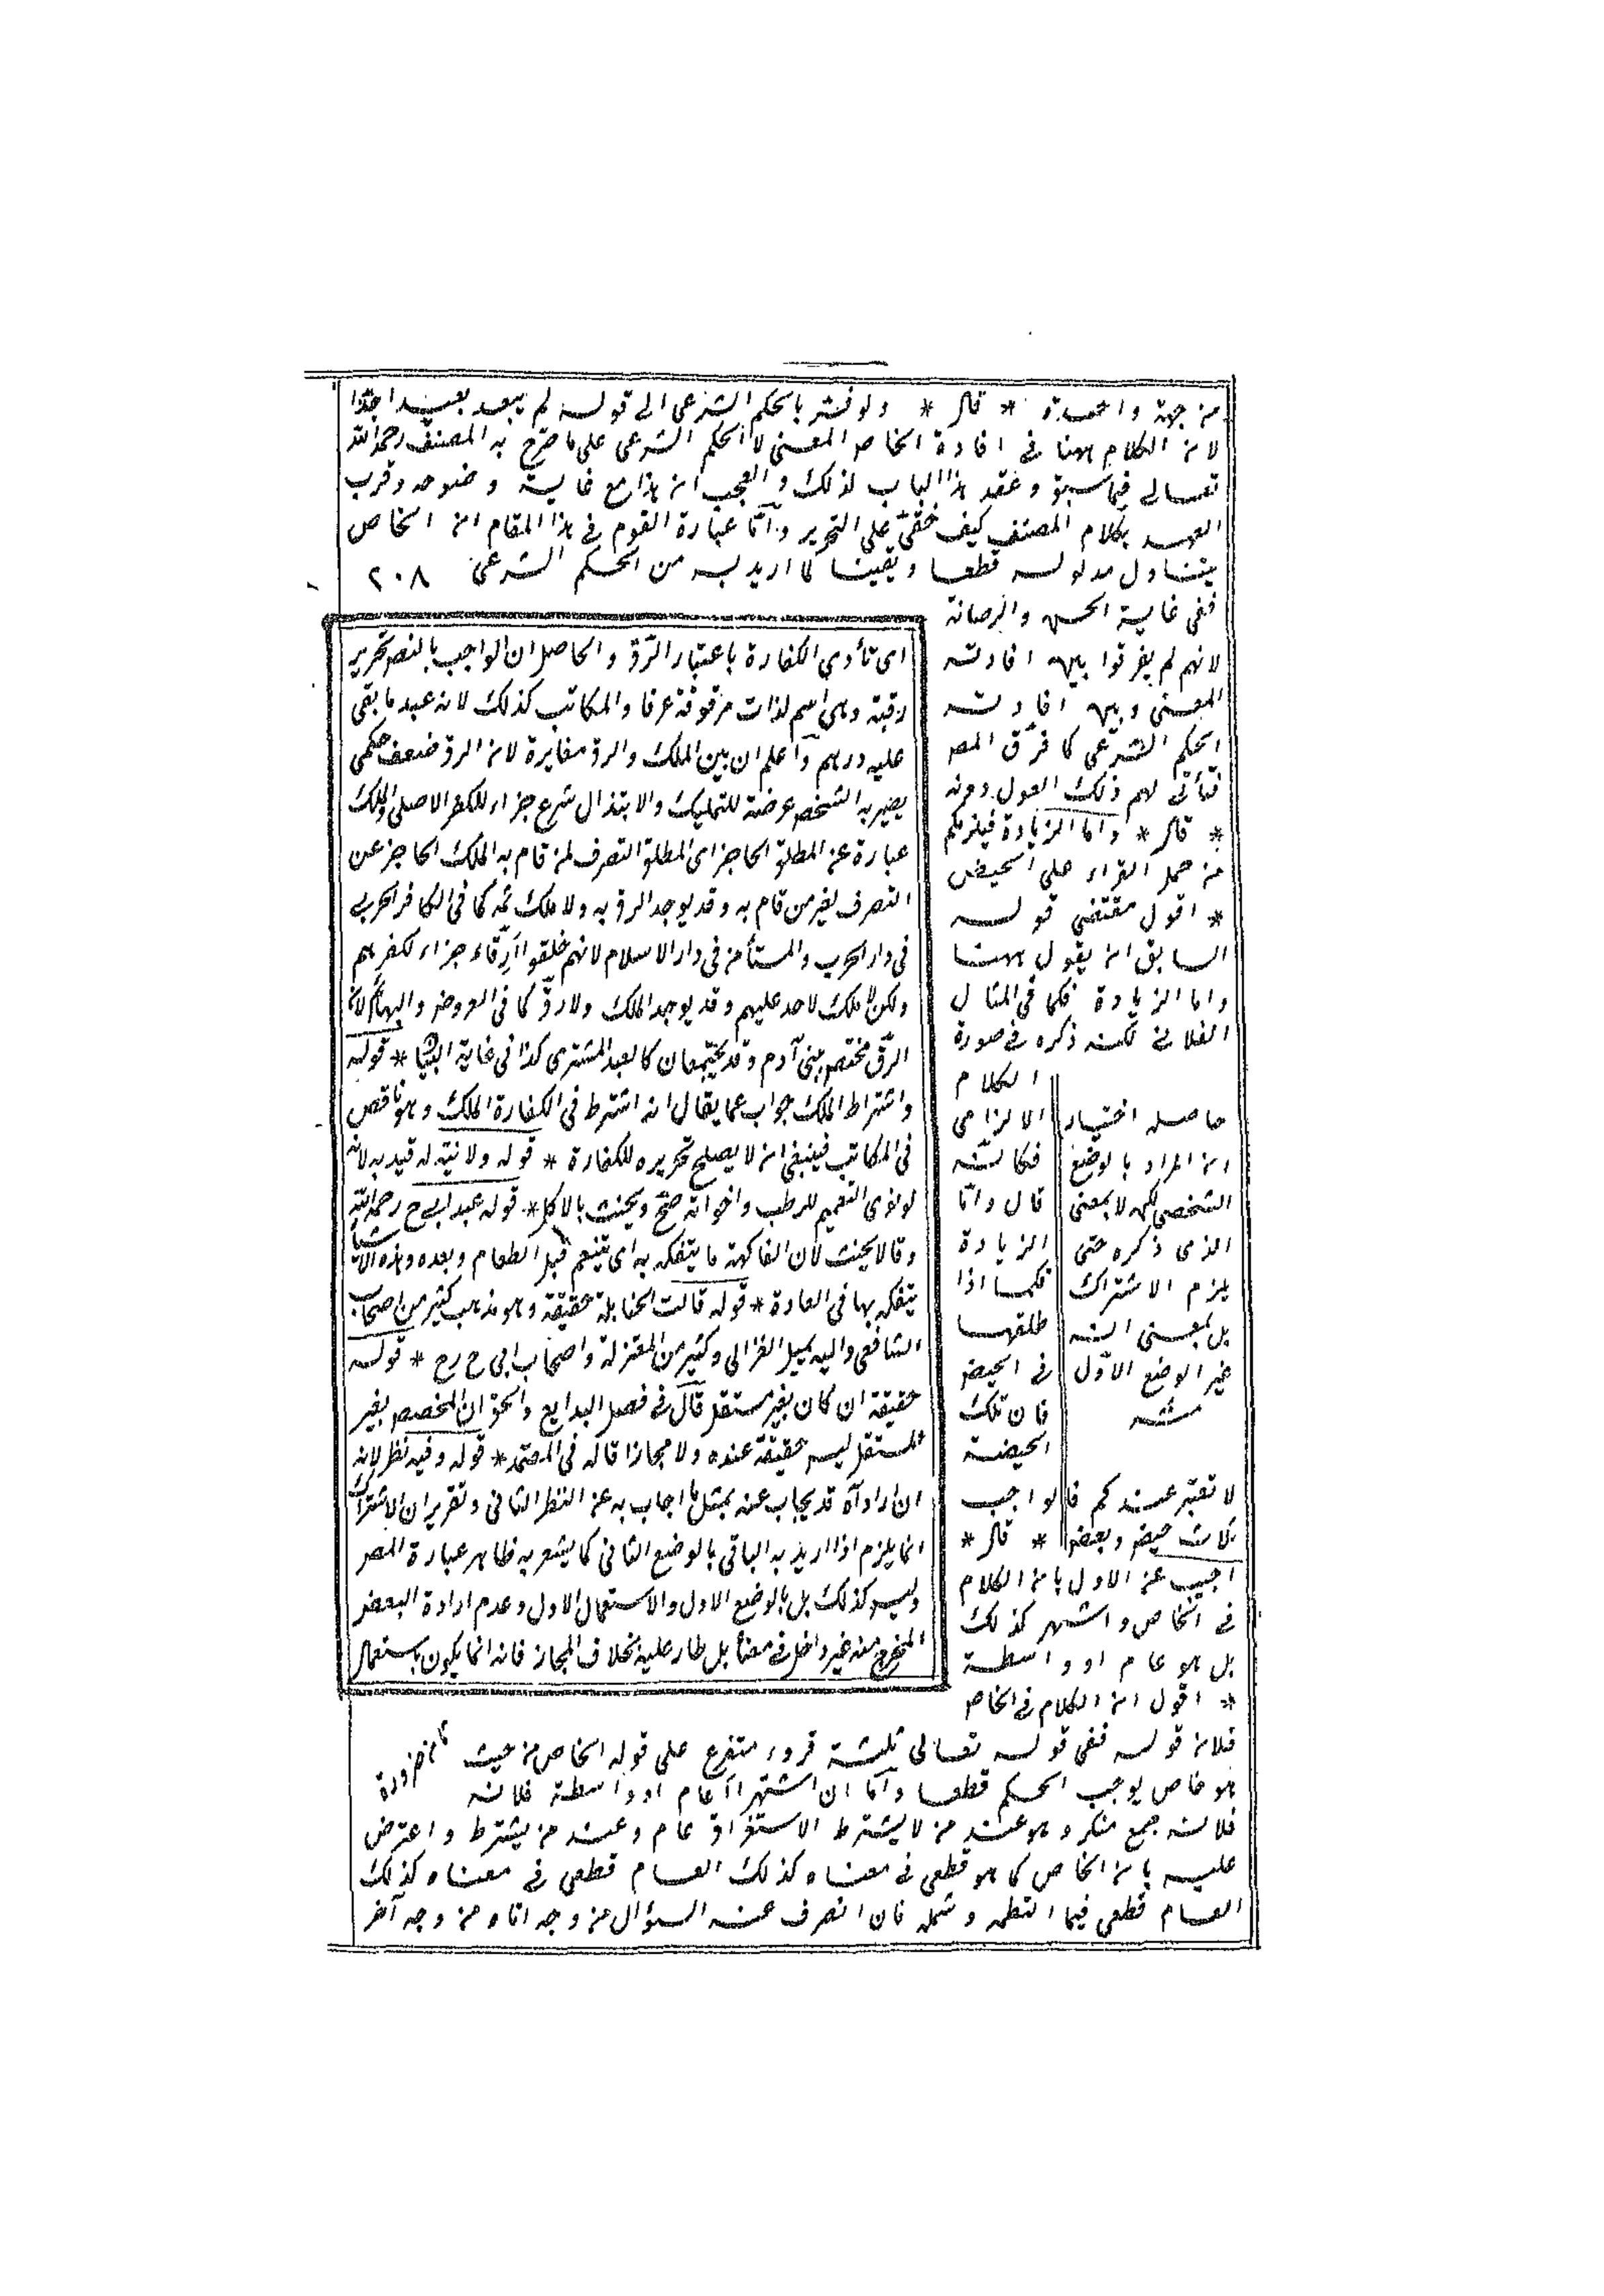 من جهة واحدة * قال * ولو فسر بالحكم الشرعى الى قوله لم يبعد بعيد جدا
لان الكلام ههنا فى افادة الخاص المعنى لا الحكم الشرعى على ما صرح به المصنف رحمه الله
تعالى فيما سبق وعقد هذا الباب لذلك والعجب ان هذا مع غاية وضوحه وقرب
العهد بكلام المصنف كيف خفى على التحرير واما عبارة القوم فى هذا المقام ان الخاص
يتناول مدلوله قطعا ويقينا لما اريد به من الحكم الشرعى ٢٠٨
ففى غاية الحسن والرصانة
لانهم لم يفرقوا بين افادته
المعنى وبين افادته
الحكم الشرعى كما فرق المص
فتأتى لهم ذلك القول دونه
* قال * واما الزيادة فيلزمكم
من حمل القراء على الحيض
* اقول مقتضى قوله
السابق ان يقول ههنا
واما الزيادة فكما فى المثال
الفلانى لكنه ذكره فى صورة
الكلام
الالزامى
فكانه
قال واما
الزيادة
فكما اذا
طلقها
فى الحيض
فان تلك
الحيضة
لا تعتبر عندكم فالواجب
ثلاث حيض وبعض * قال *
اجيب عن الاول بان الكلام
فى الخاص واشهر كذلك
بل هو عام او واسطة
* اقول ان الكلام فى الخاص
فلان قوله ففى قوله تعالى ثلثة قروء متفرع على قوله الخاص من حيث
هو خاص يوجب الحكم قطعا واما ان اشهرا عام او واسطة فلانه
فلانه جمع منكر وهو عند من لا يشترط الاستغراق عام وعند من يشترط واعترض
عليه بان الخاص كما هو قطعى فى معناه كذلك العام قطعى فى معناه كذلك
العام قطعى فيما انتظمه وشمله فان انصرف عنه السؤال من وجه اتاه من وجه آخر
حاصله اختيار
ان المراد بالوضع
الشخصى لكن لا بمعنى
الذى ذكره حتى
يلزم الاشتراك
بل بمعنى انه
غير الوضع الاول
منه
اى تأدى الكفارة باعتبار الرق والحاصل ان الواجب بالنص تحرير
رقبة وهى اسم لذات مرقوقة عرفا والمكاتب كذلك لانه عبد ما بقى
عليه درهم واعلم ان بين الملك والرق مغايرة لان الرق ضعف حكمى
يصير به الشخص عرضة للتمليك والابتذال شرع جزاء للكفر الاصلى والملك
عبارة عن المطلق الحاجز اى المطلق التصرف لمن قام به الملك الحاجز عن
التصرف لغير من قام به وقد يوجد الرق به ولا ملك ثمه كما فى الكافر الحربى
فى دار الحرب والمستأمن فى دار الاسلام لانهم خلقوا ارقاء جزاء لكفرهم
ولكن لا ملك لاحد عليهم وقد يوجد الملك ولا رق كما فى العروض والبهائم لان
الرق مختص ببنى آدم وقد يجتمعان كالعبد المشترى كذا فى غاية البيان * قوله
واشتراط الملك جواب عما يقال انه اشترط فى الكفارة الملك وهو ناقص
فى المكاتب فينبغى ان لا يصلح تحريره للكفارة * قوله ولا نية له قيد به لانه
لو نوى التعميم للرطب واخواته صح ويحنث بالاكل * قوله عند ابى ح رحمه الله
وقالا يحنث لان الفاكهة ما يتفكه به اى يتنعم قبل الطعام وبعده وهذه الاشياء
يتفكه بها فى العادة * قوله قالت الحنابلة حقيقة وهو مذهب كثير من اصحاب
الشافعى واليه يميل الغزالى وكثير من المعتزلة واصحاب ابى ح رح * قوله
حقيقة ان كان بغير مستقل قال فى فصل البدايع والحق ان المخصص بغير
المستقل ليس حقيقة عنده ولا مجازا قاله فى المعتمد * قوله وفيه نظر لانه
ان اراد آه قد يجاب عنه بمثل ما اجاب به عن النظر الثانى وتقريره ان الاشتراك
انما يلزم اذا اريد به الباقى بالوضع الثانى كما يشعر به ظاهر عبارة المص
وليس كذلك بل بالوضع الاول والاستعمال الاول وعدم ارادة البعض
المخرج منه غير داخل فى معناه بل طار عليه بخلاف المجاز فانه انما يكون باستعمال